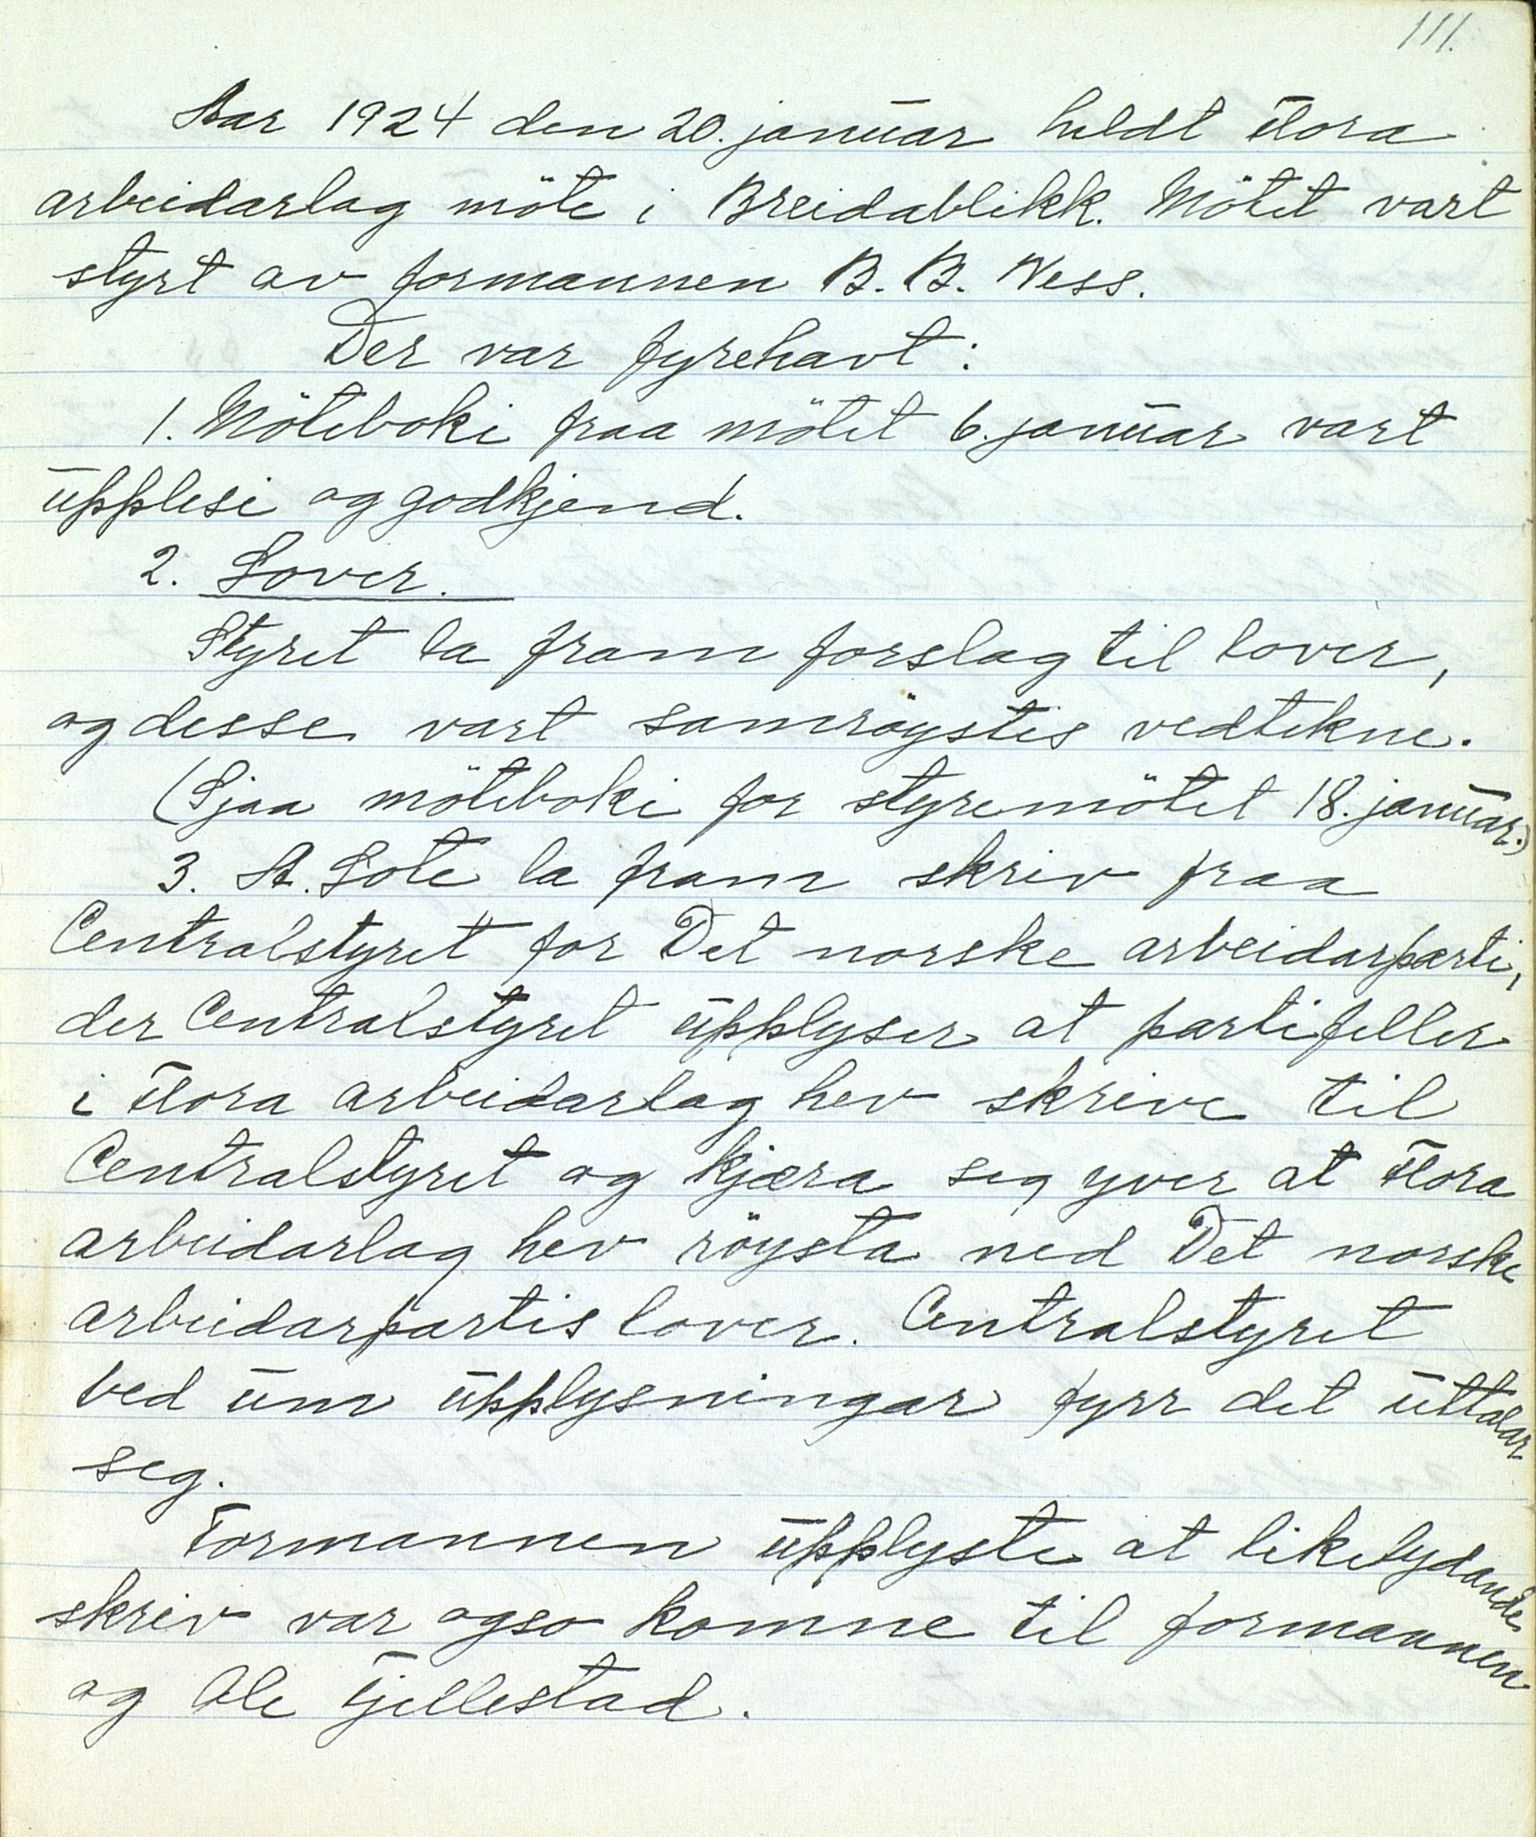 111.
Aar 1924 den 20. januar heldt Flora
arbeidarlag möte i Breidablikk. Mötet vart
styrt av formannen B. B. Ness.
Der var fyrehavt:
1. Möteboki fraa mötet 6. januar vart
upplesi og godkjend.
2. Lover.
Styret la fram forslag til lover,
og desse vart samröystes vedtekne.
(Sjaa möteboki for styremötet 18. januar.)
3. A. Sote la fram skriv fraa
Centralstyret for Det norske arbeidarparti,
der Centralstyret upplyser at partifeller
i Flora arbeidarlag hev skrive til
Centralstyret og kjæra seg yver at Flora
arbeidarlag hev röysta ned Det norske
arbeidarpartis lover. Centralstyret
bed um upplysningar fyrr det uttalar
seg.
Formannen upplyste at likelydande
skriv var ogso komne til formannen
og Ole Fjellestad.